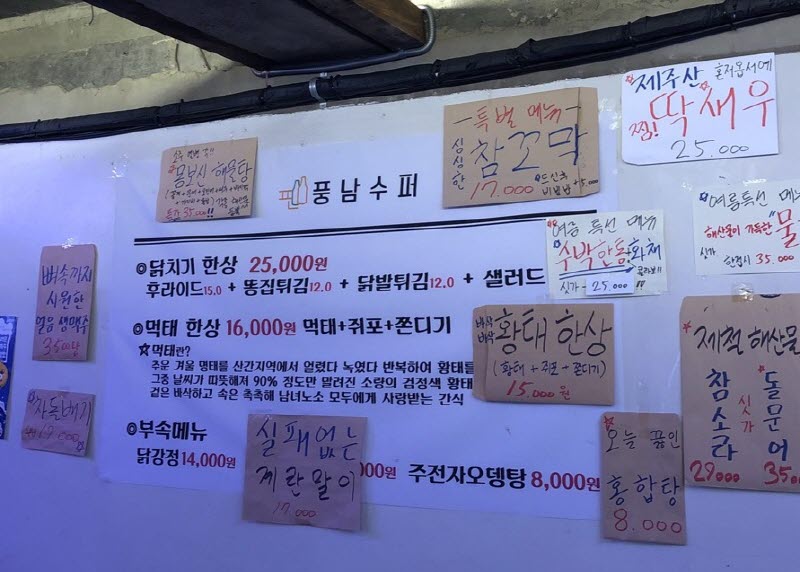 풍남수퍼
◎닭치기 한상 25,000원
후라이드15.0 + 똥집튀김12.0 + 닭발튀김12.0 + 샐러드
◎먹태 한상 16,000원 먹태+쥐포+쫀디기
☆먹태란?
주운 겨울 명태를 산간지역에서 얼렸다 녹였다 반복하여 황태를
그중 날씨가 따뜻해져 90% 정도만 말려진 소량의 검정색 황태
겉은 바삭하고 속은 촉촉해 남녀노소 모두에게 사랑받는 간식
◎부속메뉴
닭강정 14,000원
000원 주전자오뎅탕 8,000원
몸보신 해물탕
특가 35.000!!
뼈속까지
시원한
얼음 생맥주
3500
차돌배기
19.000
실패없는
계란말이
17.000
-특별 메뉴-
싱싱한 참꼬막
17.000
비빔밥 +5.000
제주산 혼저옵서예
찜! 딱새우
25.000
여름 특선 메뉴
수박한통화채
싯가- 25.000
여름특선 메뉴
해산물이 가득한 "물
싯가 한접시 35.000
바삭바삭 황태 한상
(황태 + 쥐포 + 쫀디기)
15.000원
오늘 끓인
홍합탕
8.000
제철 해산물
참소라
29000
싯가
돌문어
35.00